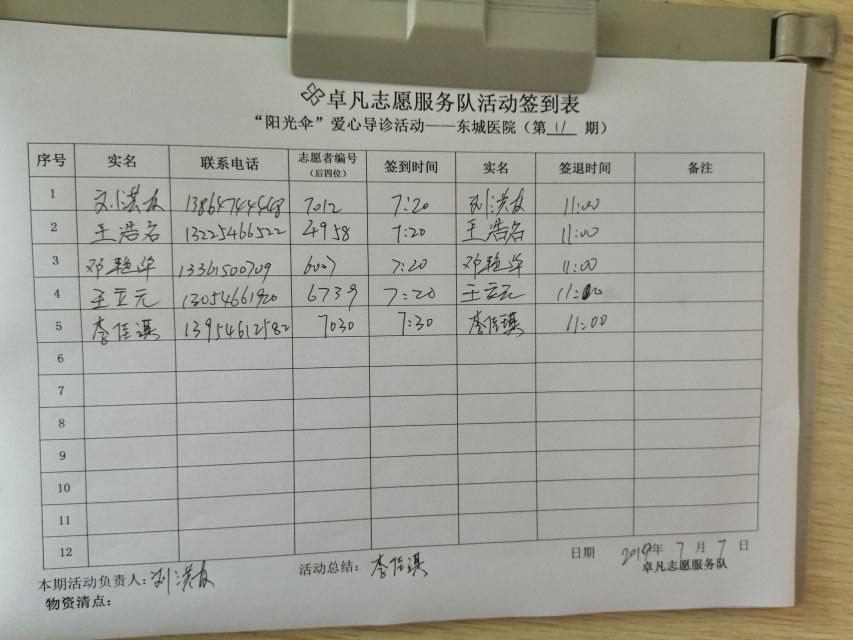 卓凡志愿服务队活动签到表
“阳光伞”爱心导诊活动——东城医院（第 11 期）
序号 实名 联系电话 志愿者编号（后四位） 签到时间 实名 签退时间 备注
1 刘洪友 13864744448 7012 7:20 刘洪友 11:00
2 王浩名 13225466522 4958 7:20 王浩名 11:00
3 邓艳华 13361500709 6007 7:20 邓艳华 11:00
4 王立元 13054661920 6739 7:20 王立元 11:00
5 李佳琪 13954612582 7030 7:30 李佳琪 11:00
6
7
8
9
10
11
12
本期活动负责人：刘洪友 活动总结：李佳琪 日期 2019年 7 月 7 日
物资清点： 卓凡志愿服务队